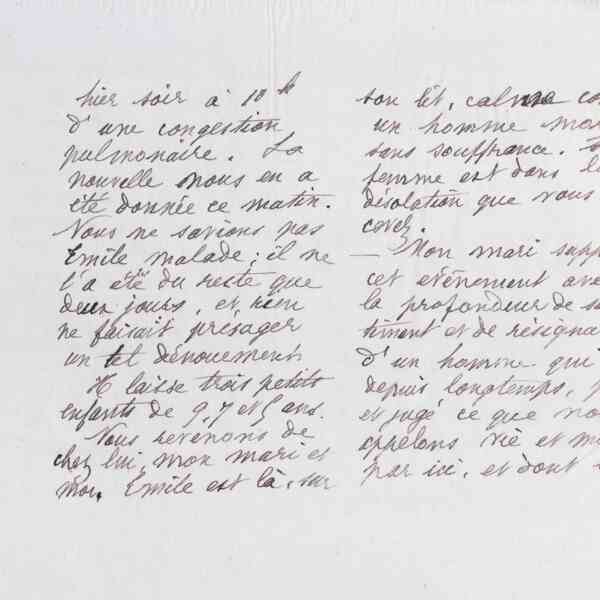 hier soir à 10 h
d'une congestion
pulmonaire. La
nouvelle nous en a
été donnée ce matin.
Nous ne savions pas
Emile malade; il ne
l'a été du reste que
deux jours, et rien
ne faisait présager
un tel dénouement
Il laisse trois petits
enfants de 9, 7 et 5 ans.
Nous revenons de
chez lui, mon mari et
moi. Emile est là, sur
son lit, calme
un homme
sans souffrance.
femme est dans
désolation que vous
cevez.
— Mon mari
cet evénement
la profondeur de
timent et de
d'un homme qui
depuis longtemps,
et jugé ce que
appelons vie et
par ici, et dont